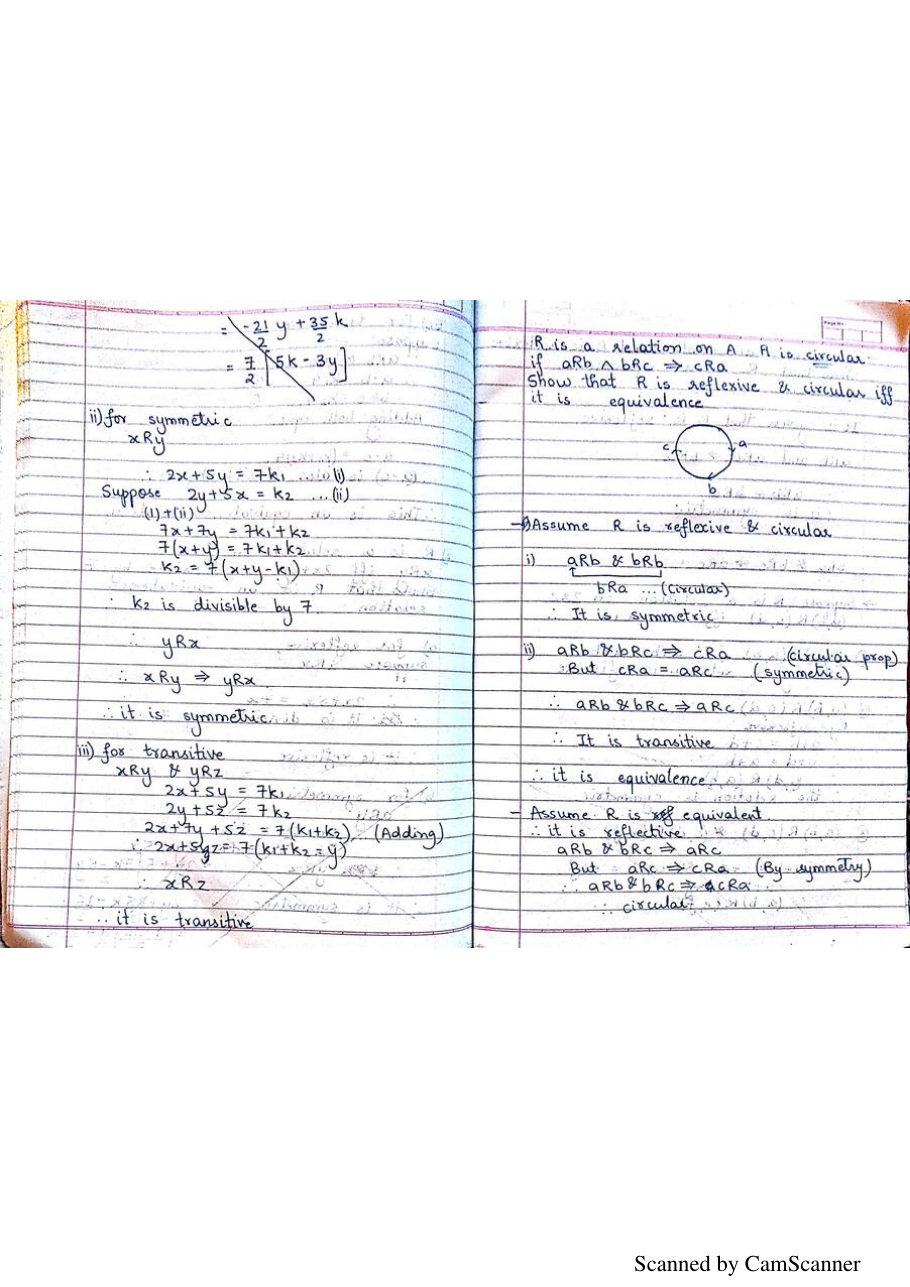 = -21/2 y + 35/2 k
= 7/2 [5k - 3y]
ii) for symmetric
xRy
∴ 2x + 5y = 7k₁ (i)
Suppose 2y + 5x = k₂ ... (ii)
(i) + (ii)
7x + 7y = 7k₁ + k₂
7(x+y) = 7k₁ + k₂
k₂ = 7(x+y-k₁)
∴ k₂ is divisible by 7
∴ yRx
∴ xRy ⇒ yRx
∴ it is symmetric
iii) for transitive
xRy & yRz
2x + 5y = 7k₁
2y + 5z = 7k₂
2x + 7y + 5z = 7(k₁+k₂) ... (Adding)
∴ 2x + 5z = 7(k₁+k₂-y)
∴ xRz
∴ it is transitive
Page No.
R is a relation on A. R is circular
if aRb ∧ bRc ⇒ cRa
Show that R is reflexive & circular iff
it is equivalence
c a
b
→ Assume R is reflexive & circular
i) aRb & bRb
bRa ... (circular)
∴ It is symmetric
ii) aRb & bRc ⇒ cRa (circular prop)
But cRa = aRc (symmetric)
∴ aRb & bRc ⇒ aRc
∴ It is transitive
∴ it is equivalence
- Assume R is equivalent
∴ it is reflective
aRb & bRc ⇒ aRc
But aRc ⇒ cRa (By symmetry)
∴ aRb & bRc ⇒ cRa
∴ circular
Scanned by CamScanner